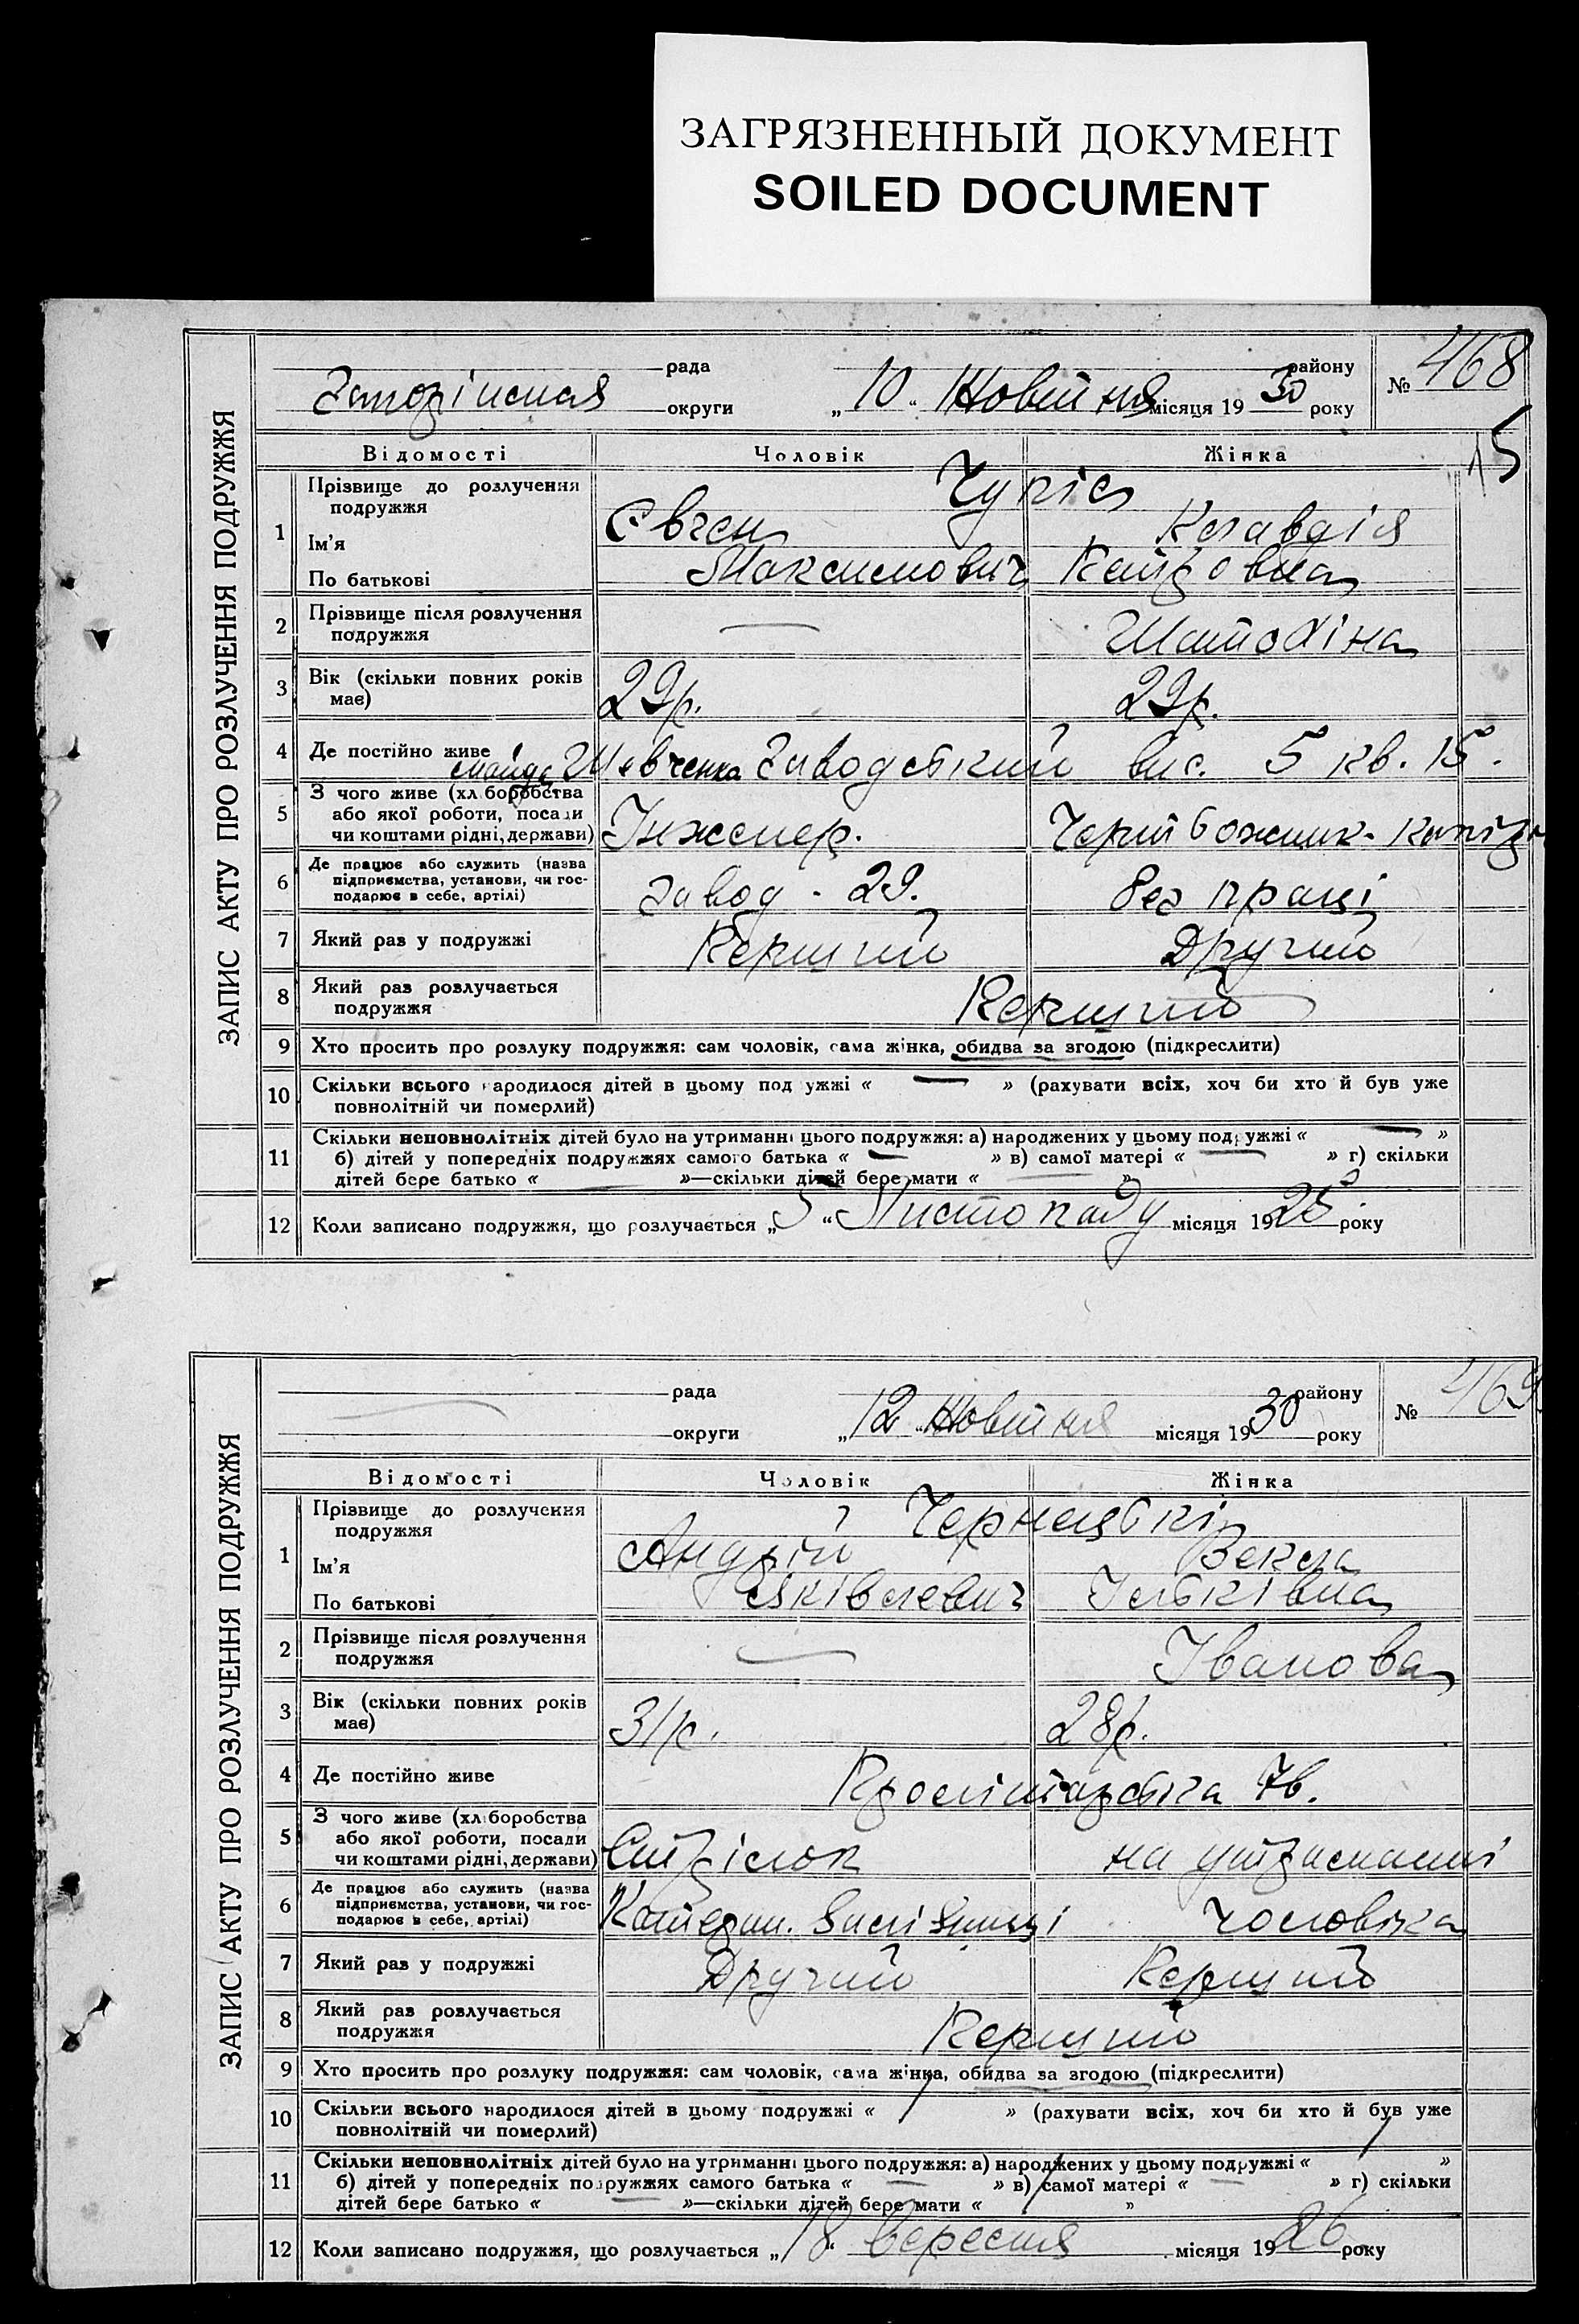 ЗАГРЯЗНЕННЫЙ ДОКУМЕНТ
SOILED DOCUMENT
ЗАПИС АКТУ ПРО РОЗЛУЧЕННЯ ПОДРУЖЖЯ
рада району № 468
округи „ 10 “ Жовтня місяця 19 30 року
15
Відомості Чоловік Жінка
1 Прізвище до розлучення подружжя
Ім’я Євген Клавдія
По батькові Максимович
2 Прізвище після розлучення
подружжя —
3 Вік (скільки повних років
має) 29р. 29р.
4 Де постійно живе Шевченка Заводський вис. 5 кв. 15.
5 З чого живе (хліборобства
або якої роботи, посади
чи коштами рідні, держави) Інженер.
6 Де працює або служить (назва
підприємства, установи, чи гос-
подарює в себе, артілі) завод - 29. без праці
7 Який раз у подружжі Перший Другий
8 Який раз розлучається
подружжя Перший
9 Хто просить про розлуку подружжя: сам чоловік, сама жінка, обидва за згодою (підкреслити)
10 Скільки всього народилося дітей в цьому подружжі « — » (рахувати всіх, хоч би хто й був уже
повнолітній чи померлий)
11 Скільки неповнолітніх дітей було на утриманні цього подружжя: а) народжених у цьому подружжі « — »
б) дітей у попередніх подружжях самого батька « — » в) самої матері « — » г) скільки
дітей бере батько « — »—скільки дітей бере мати « — »
12 Коли записано подружжя, що розлучається „ 5 “ Листопаду місяця 1925 року
ЗАПИС АКТУ ПРО РОЗЛУЧЕННЯ ПОДРУЖЖЯ
рада району № 469
округи „ 12 “ Жовтня місяця 19 30 року
Відомості Чоловік Жінка
1 Прізвище до розлучення
подружжя
Ім’я Андрій Векла
По батькові Яківлевич Ільківна
2 Прізвище після розлучення
подружжя — Іванова
3 Вік (скільки повних років
має) 31р. 28р.
4 Де постійно живе 7в.
5 З чого живе (хліборобства
або якої роботи, посади
чи коштами рідні, держави) Стрілок на утриманні
6 Де працює або служить (назва
підприємства, установи, чи гос-
подарює в себе, артілі) чоловіка
7 Який раз у подружжі Другий Перший
8 Який раз розлучається
подружжя Перший
9 Хто просить про розлуку подружжя: сам чоловік, сама жінка, обидва за згодою (підкреслити)
10 Скільки всього народилося дітей в цьому подружжі « » (рахувати всіх, хоч би хто й був уже
повнолітній чи померлий)
11 Скільки неповнолітніх дітей було на утриманні цього подружжя: а) народжених у цьому подружжі « »
б) дітей у попередніх подружжях самого батька « — » в) самої матері « — » г) скільки
дітей бере батько « — »—скільки дітей бере мати « »
12 Коли записано подружжя, що розлучається „ 18 “ Вересня місяця 1926 року